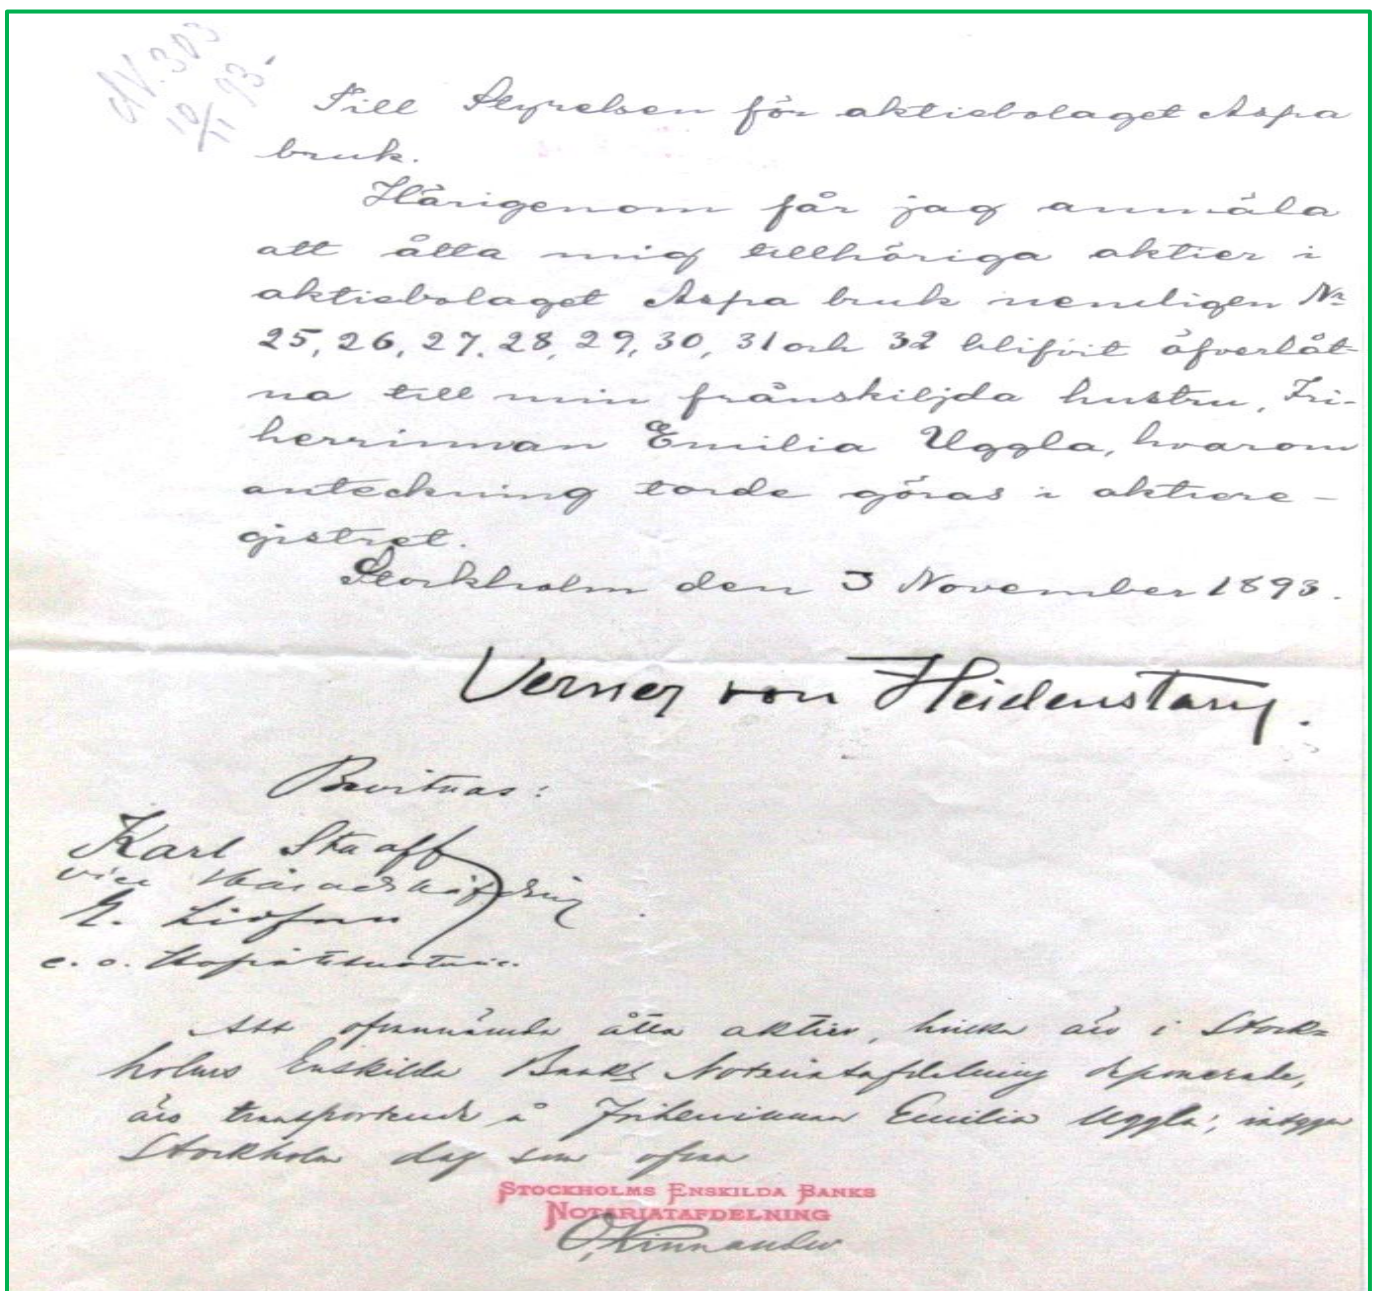 N. 303
10/11 93.
Till Styrelsen för aktiebolaget Aspa
bruk.
Härigenom får jag anmäla
att åtta mig tillhöriga aktier i
aktiebolaget Aspa bruk nemligen Nr
25, 26, 27, 28, 29, 30, 31 och 32 blifvit öfverlåt-
na till min frånskiljda hustru, Fri-
herrinnan Emilia Uggla, hvarom
anteckning torde göras i aktiere-
gistret.
Stockholm den 3 November 1893.
Verner von Heidenstam.
Bevitnas:
Karl Staaff
vice Häradshöfding
e. o. Hofrättsnotarie.
Att ofvannämnda åtta aktier, hvilka äro i Stock-
holms Enskilda Banks Notariatafdelning deponerade,
äro transporterade å Friherrinnan Emilia Uggla; intygar
Stockholm dag som ofvan
STOCKHOLMS ENSKILDA BANKS
NOTARIATAFDELNING
O. Kinnander